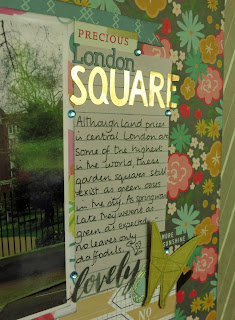 PRECIOUS
London
SQUARE
Although Land prices
in central London are
some of the highest
in the world these
garden squares still
exist as green oases
in the city. As spring was
late they weren't as
green as expected
no leaves only
daffodils
lovely
MORE
SUNSHINE
NO